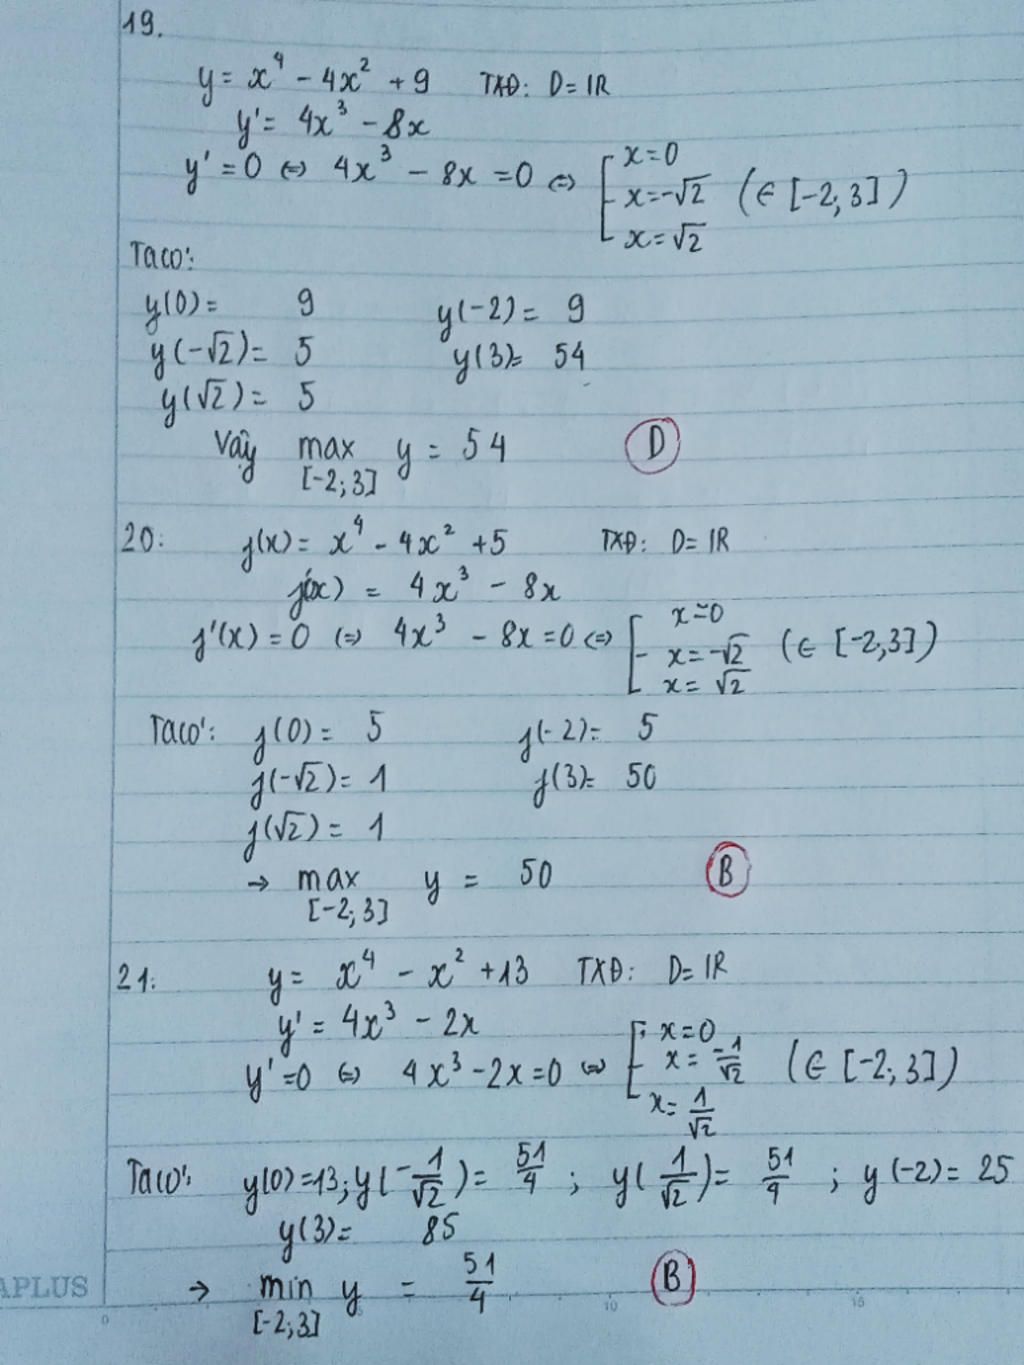 19.
y = x⁴ - 4x² + 9 TXĐ: D = IR
y' = 4x³ - 8x
y' = 0 ⇔ 4x³ - 8x = 0 ⇔ [ x = 0
x = -√2 (∈ [-2; 3])
x = √2
Ta có:
y(0) = 9 y(-2) = 9
y(-√2) = 5 y(3) = 54
y(√2) = 5
Vậy max y = 54 D
[-2; 3]
20: f(x) = x⁴ - 4x² + 5 TXĐ: D = IR
f'(x) = 4x³ - 8x
f'(x) = 0 ⇔ 4x³ - 8x = 0 ⇔ [ x = 0
x = -√2 (∈ [-2; 3])
x = √2
Ta có: f(0) = 5 f(-2) = 5
f(-√2) = 1 f(3) = 50
f(√2) = 1
→ max y = 50 B
[-2; 3]
21: y = x⁴ - x² + 13 TXĐ: D = IR
y' = 4x³ - 2x
y' = 0 ⇔ 4x³ - 2x = 0 ⇔ [ x = 0
x = -1/√2 (∈ [-2; 3])
x = 1/√2
Ta có: y(0) = 13; y(-1/√2) = 51/4 ; y(1/√2) = 51/4 ; y(-2) = 25
y(3) = 85
→ min y = 51/4 B
[-2; 3]
APLUS
0 5 10 15